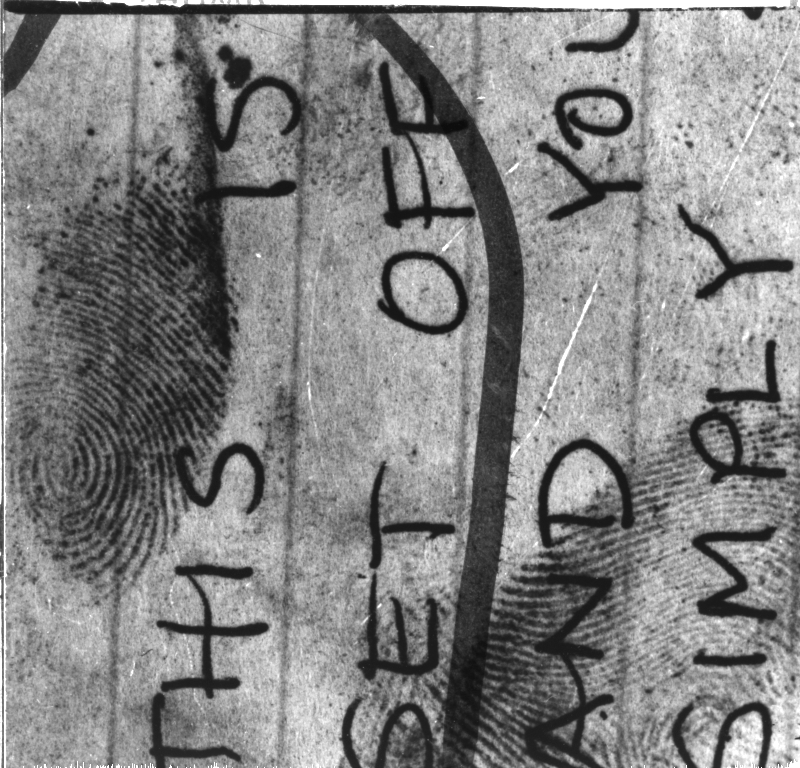 THIS IS
SET OFF
AND YOU
SIMPLY